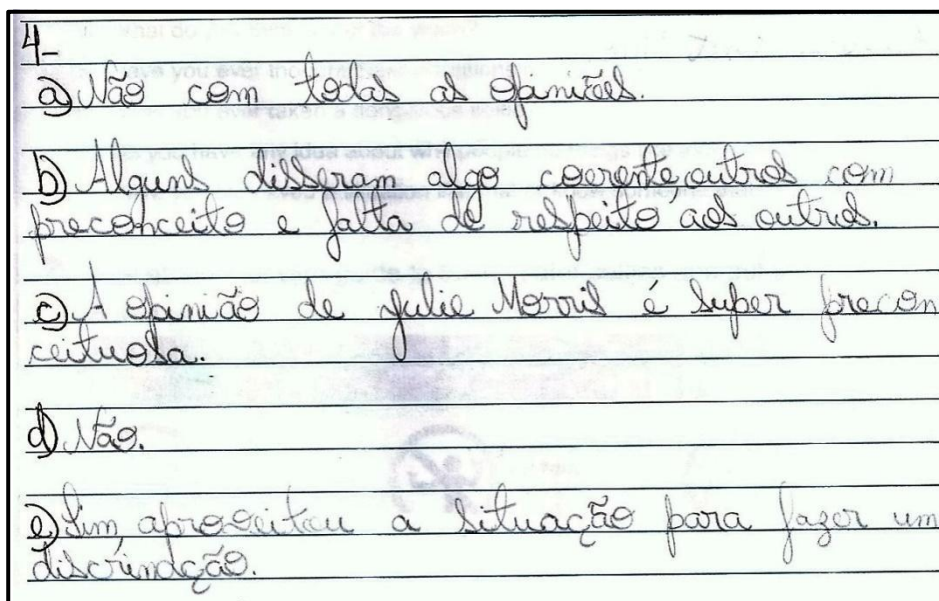 4-
a) Não com todas as opiniões.
b) Alguns disseram algo coerente, outros com
preconceito e falta de respeito aos outros.
c) A opinião de Julie Morris é super precon
ceituosa.
d) Não.
e) Sim, aproveitou a situação para fazer um